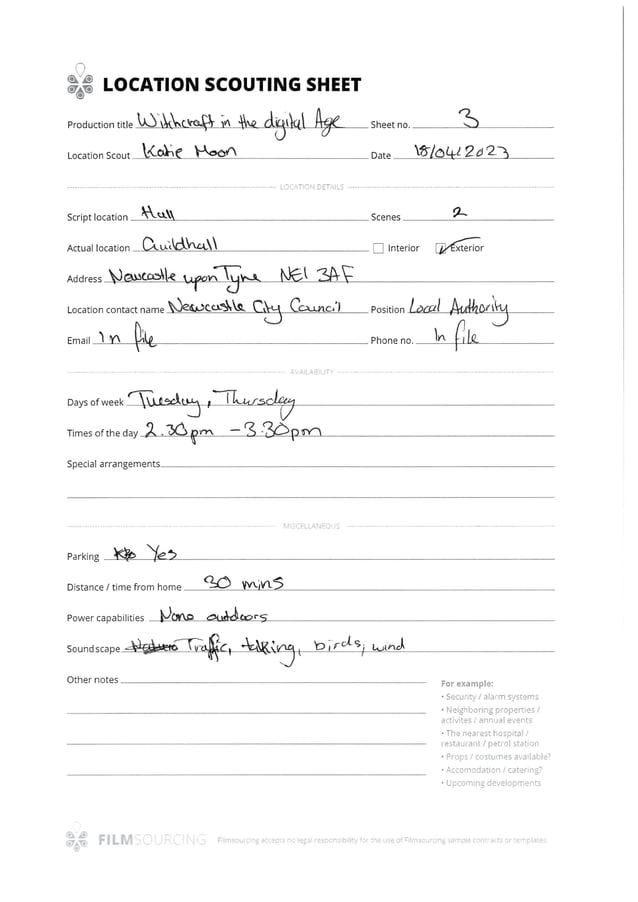 LOCATION SCOUTING SHEET
Production title Witchcraft in the digital Age Sheet no. 3
Location Scout Katie Moon Date 18/04/2023
LOCATION DETAILS
Script location Hall Scenes 2
Actual location Guildhall Interior Exterior
Address Newcastle upon Tyne NE1 3AF
Location contact name Newcastle City Council Position Local Authority
Email In file Phone no. In file
AVAILABILITY
Days of week Tuesday, Thursday
Times of the day 2.30pm - 3:30pm
Special arrangements
MISCELLANEOUS
Parking Yes
Distance / time from home 30 mins
Power capabilities None outdoors
Soundscape Traffic, talking, birds, wind
Other notes
For example:
• Security / alarm systems
• Neighboring properties /
activites / annual events
• The nearest hospital /
restaurant / petrol station
• Props / costumes available?
• Accomodation / catering?
• Upcoming developments
FILMSOURCING Filmsourcing accepts no legal responsibility for the use of Filmsourcing sample contracts or templates